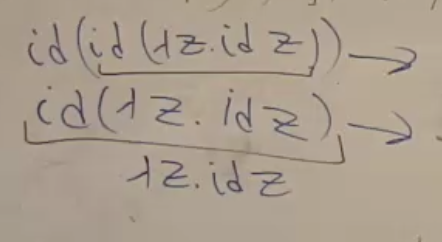 id(id(λz.id z))→
id(λz.id z)→
λz.id z